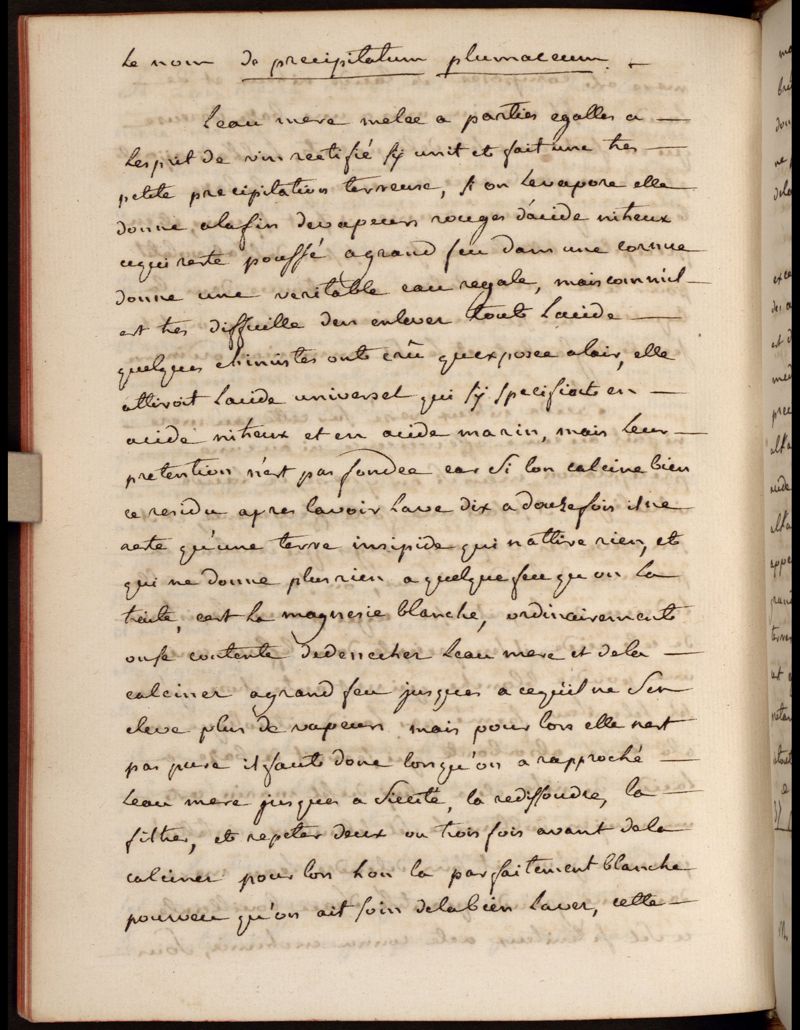 Le nom de precipitatum plumaceum. –
Leau mere melée a parties egalles a —
Lesprit de vin rectifié sÿ unit et fait une tres —
petite precipitation terreuse, si on Levapore elle
donne alafin devapeurs rouges dácide nitreux
cequi reste poussé agrand feu dans une cornue
donne une veritable eau regale, mais comme il —
est tres difficille den enlever toute Lacide —
quelques chimistes onts crû quexposée alair, elle
attiroit Lacide universel qui sÿ specifioit en —
acide nitreux et en acide marin, mais Leur —
pretention n'est pas fondée car Si lon calcine bien
ce residu apres lavoir Lavé dix a douze fois il ne
reste qu'une terre insipide qui nattire rien, et
qui ne donne plus rien a quelque feu qu'on La
traite, cest La magnesie blanche, ordinairement
onse contente dedenecher Leau mere et dela —
calciner agrand feu jusques aceqúil ne Sen
eleve plus de vapeurs mais pour lors elle nest
pas pure il faut donc lorsqu'on a rapproché —
Leau mere jusques a Siccité, la redissoudre, la —
filtrer, et repeter deux ou trois fois avant dela
calciner pour lors lon la parfaitement blanche
pourveu qu'on ait soin delabien Laver, cette —